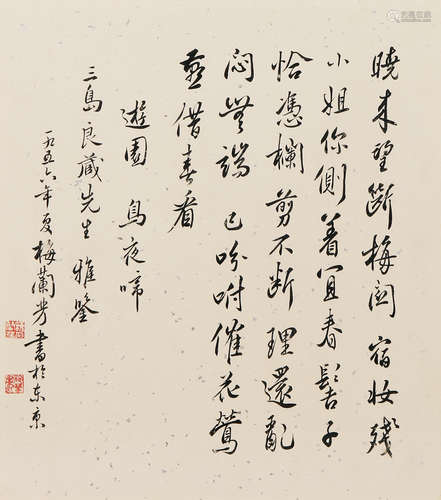 晓来望断梅关宿妆残
小姐你侧着宜春髻子
恰凭栏剪不断理还乱
闷无端已吩咐催花莺
燕借春看
遊園 烏夜啼
三島良蔵先生雅鑒
一九五六年夏梅蘭芳書於东京